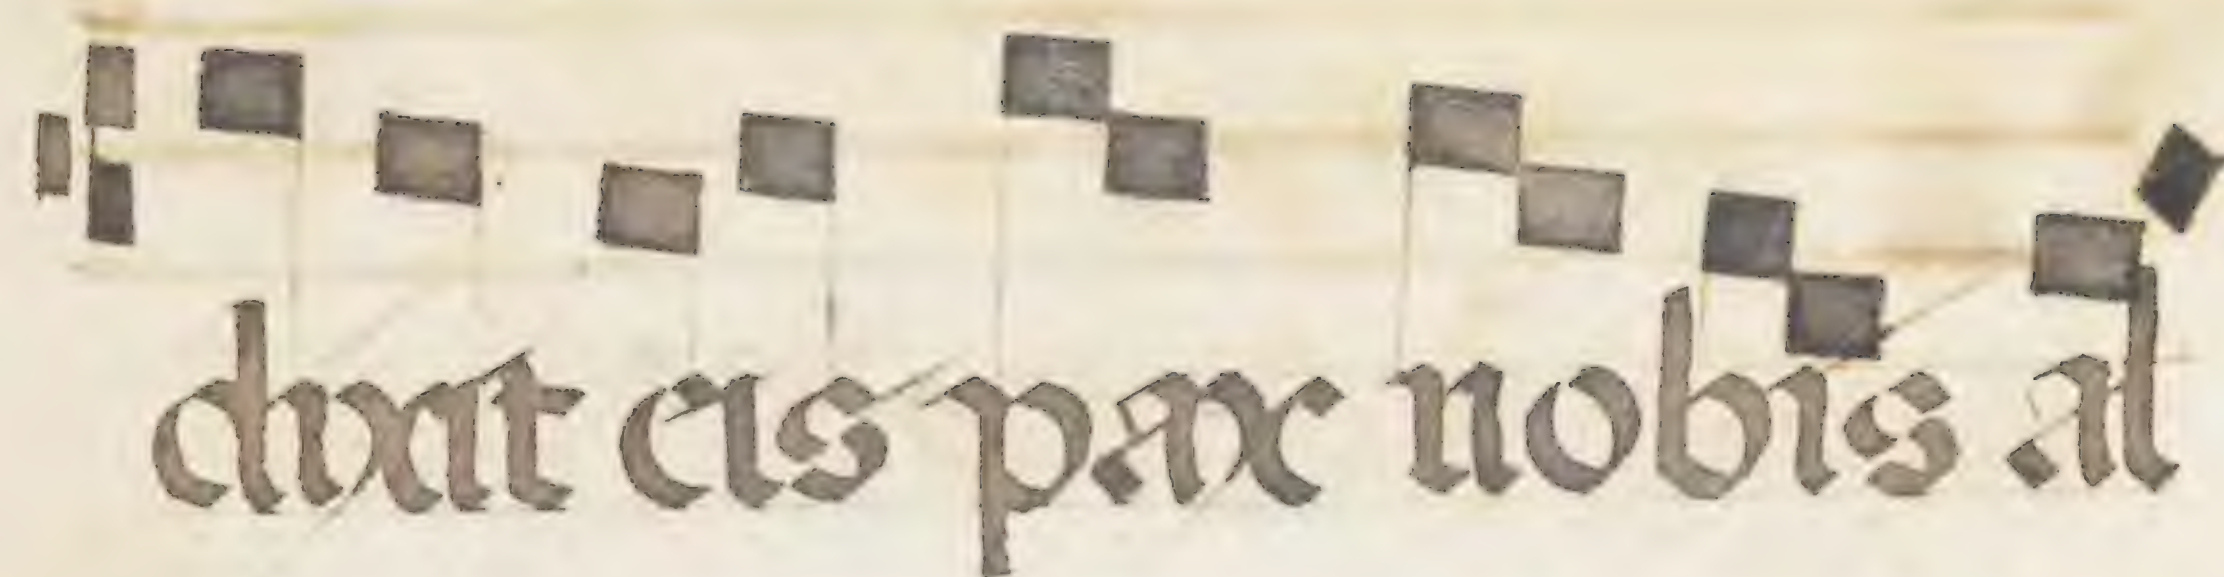 dixit eis pax nobis al